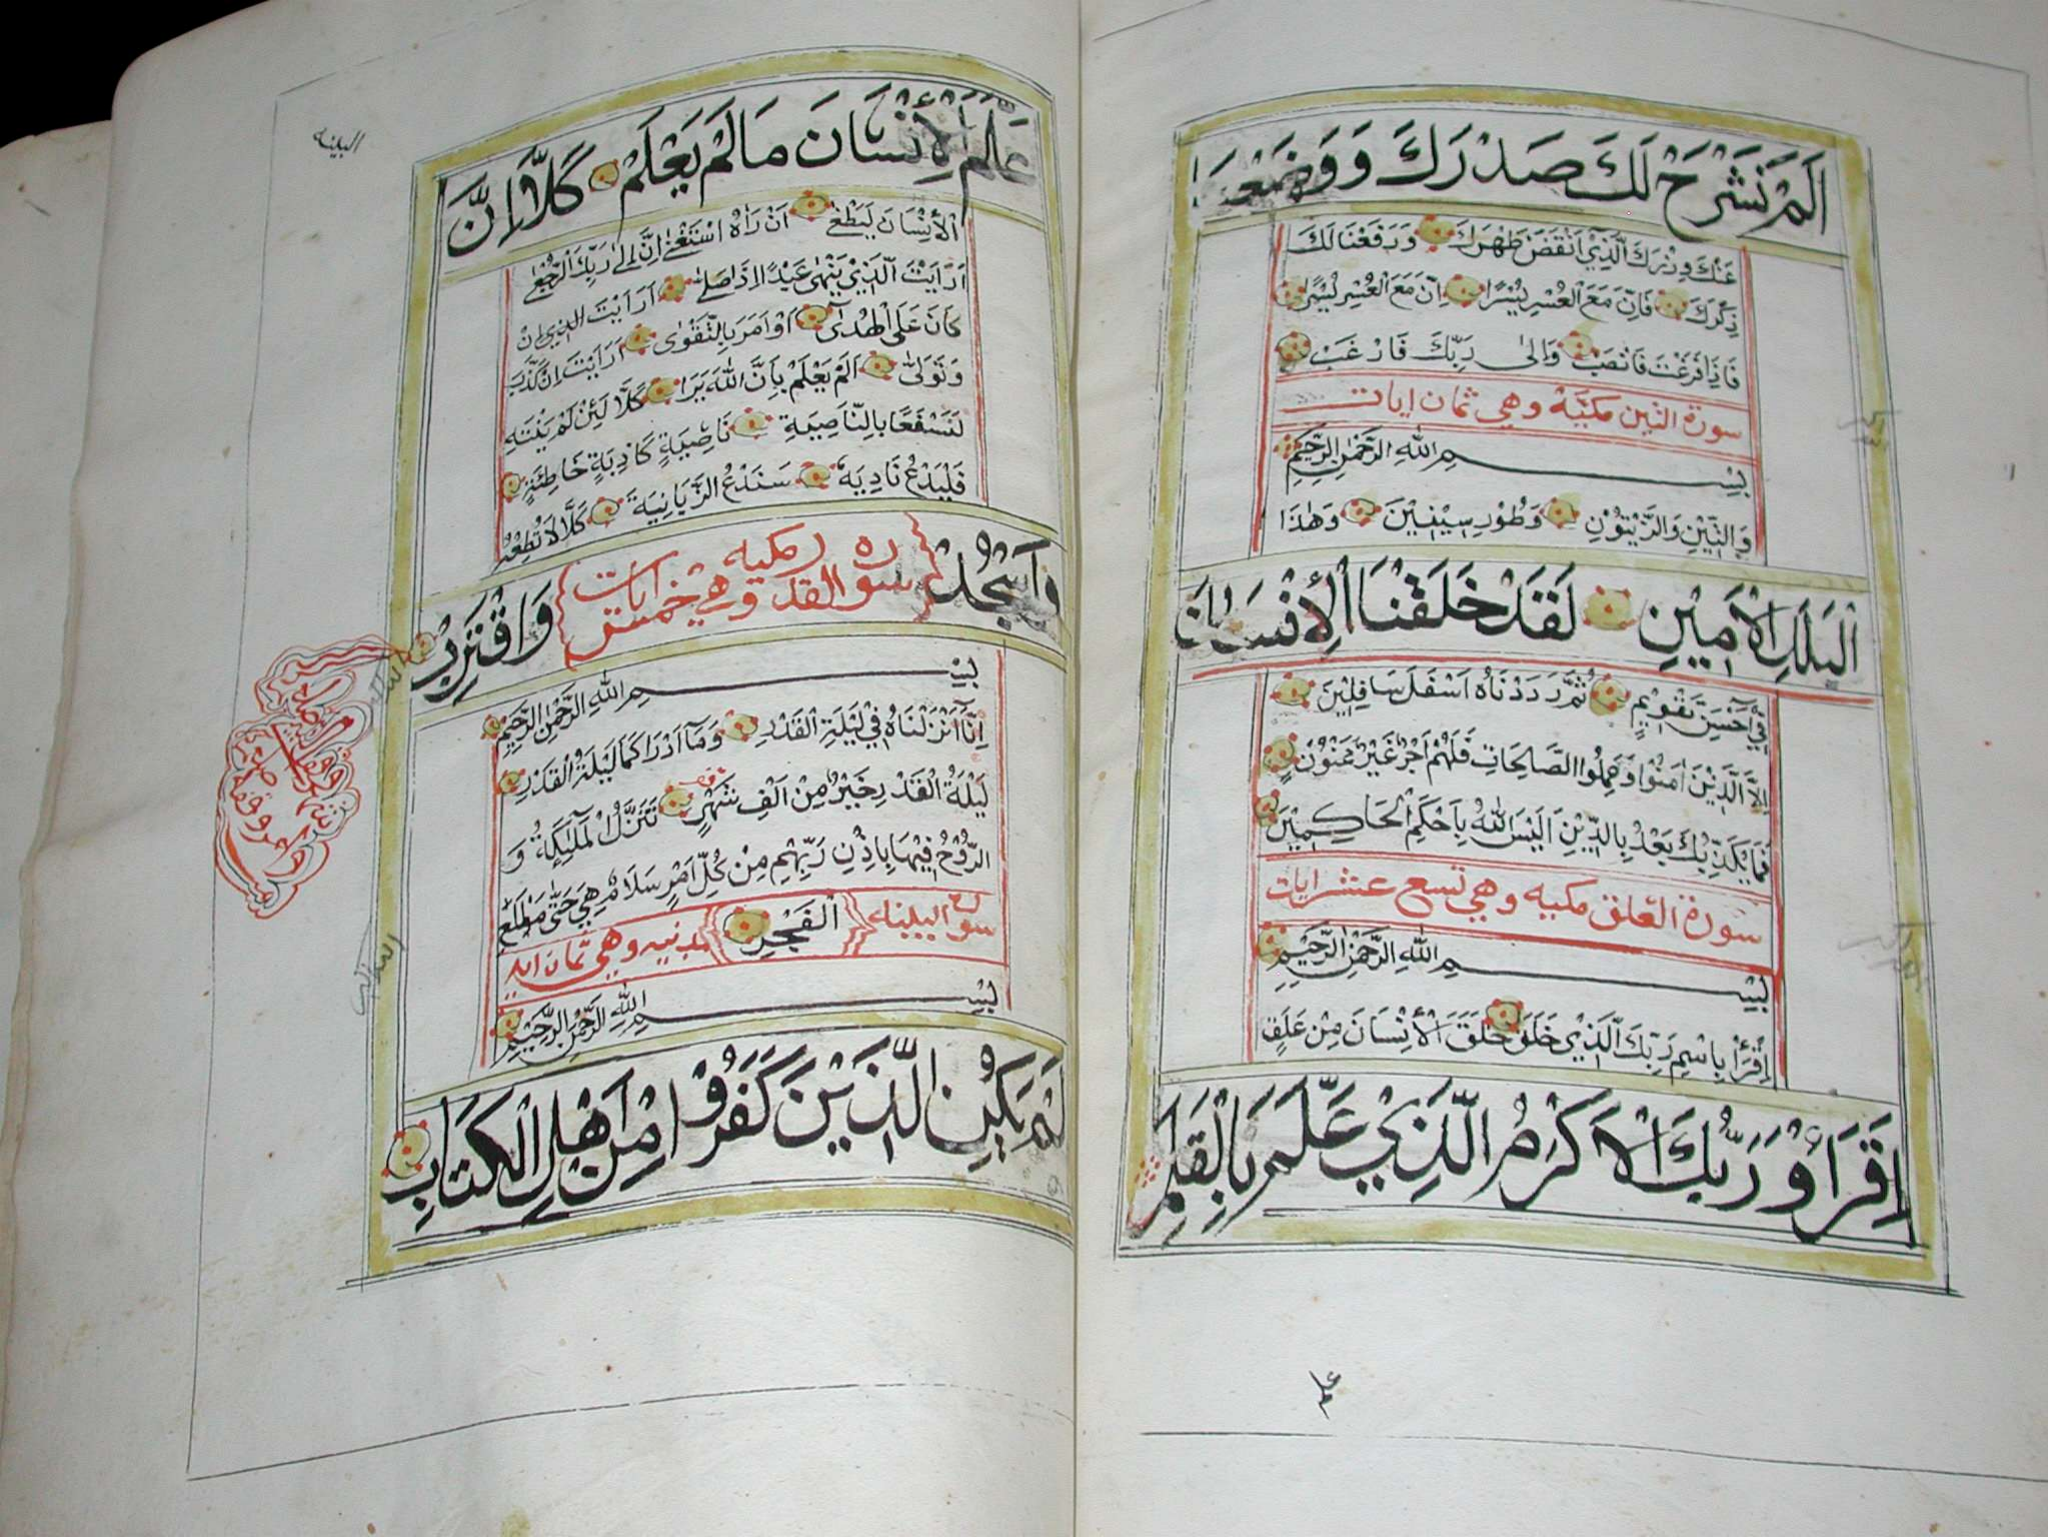 اَلَمْ نَشْرَحْ لَكَ صَدْرَكَ وَوَضَعْنَا
عَنْكَ وِزْرَكَ الَّذِيْ اَنْقَضَ ظَهْرَكَ وَرَفَعْنَا لَكَ
ذِكْرَكَ فَاِنَّ مَعَ الْعُسْرِ يُسْرًا اِنَّ مَعَ الْعُسْرِ يُسْرًا
فَاِذَا فَرَغْتَ فَانْصَبْ وَاِلٰى رَبِّكَ فَارْغَبْ
سورة التين مكيّة وهي ثمان ايات
بِسْــمِ اللهِ الرَّحْمٰنِ الرَّحِيْمِ
وَالتِّيْنِ وَالزَّيْتُوْنِ وَطُوْرِ سِيْنِيْنَ وَهٰذَا
الْبَلَدِ الْاَمِيْنِ لَقَدْ خَلَقْنَا الْأِنْسَانَ
فِيْ اَحْسَنِ تَقْوِيْمٍ ثُمَّ رَدَدْنَاهُ اَسْفَلَ سَافِلِيْنَ
اِلَّا الَّذِيْنَ اٰمَنُوْا وَعَمِلُوا الصَّالِحَاتِ فَلَهُمْ اَجْرٌ غَيْرُ مَمْنُوْنٍ
فَمَا يُكَذِّبُكَ بَعْدُ بِالدِّيْنِ اَلَيْسَ اللهُ بِاَحْكَمِ الْحَاكِمِيْنَ
سورة العلق مكيه وهي تسع عشر ايات
بِسْــمِ اللهِ الرَّحْمٰنِ الرَّحِيْمِ
اِقْرَأْ بِاسْمِ رَبِّكَ الَّذِيْ خَلَقَ خَلَقَ الْأِنْسَانَ مِنْ عَلَقٍ
اِقْرَأْ وَرَبُّكَ الْاَكْرَمُ الَّذِيْ عَلَّمَ بِالْقَلَمِ
البينه
عَلَّمَ الْأِنْسَانَ مَالَمْ يَعْلَمْ كَلَّا اِنَّ
الْأِنْسَانَ لَيَطْغٰى اَنْ رَاٰهُ اسْتَغْنٰى اِنَّ اِلٰى رَبِّكَ الرُّجْعٰى
اَرَاَيْتَ الَّذِيْ يَنْهٰى عَبْدًا اِذَا صَلّٰى اَرَاَيْتَ الذي اِنْ
كَانَ عَلَى الْهُدٰى اَوْ اَمَرَ بِالتَّقْوٰى اَرَاَيْتَ اِنْ كَذَّبَ
وَتَوَلّٰى اَلَمْ يَعْلَمْ بِاَنَّ اللهَ يَرَا كَلَّا لَئِنْ لَمْ يَنْتَهِ
لَنَسْفَعًا بِالنَّاصِيَةِ نَاصِيَةٍ كَاذِبَةٍ خَاطِئَةٍ
فَلْيَدْعُ نَادِيَهُ سَنَدْعُ الزَّبَانِيَةَ كَلَّا لَا تُطِعْهُ
وَاسْجُدْ سوره القدر مكيه وهي خمس ايات وَاقْتَرِبْ
بِسْــمِ اللهِ الرَّحْمٰنِ الرَّحِيْمِ
اِنَّا اَنْزَلْنَاهُ فِيْ لَيْلَةِ الْقَدْرِ وَمَا اَدْرَاكَ مَا لَيْلَةُ الْقَدْرِ
لَيْلَةُ الْقَدْرِ خَيْرٌ مِنْ اَلْفِ شَهْرٍ تَنَزَّلُ الْمَلٰٓئِكَةُ وَ
الرُّوْحُ فِيْهَا بِاِذْنِ رَبِّهِمْ مِنْ كُلِّ اَمْرٍ سَلَامٌ هِيَ حَتّٰى مَطْلَعِ
سورة البينه الْفَجْرِ مدنيه وهي ثمان ايه
بِسْــمِ اللهِ الرَّحْمٰنِ الرَّحِيْمِ
لَمْ يَكُنِ الَّذِيْنَ كَفَرُوْا مِنْ اَهْلِ الْكِتَابِ